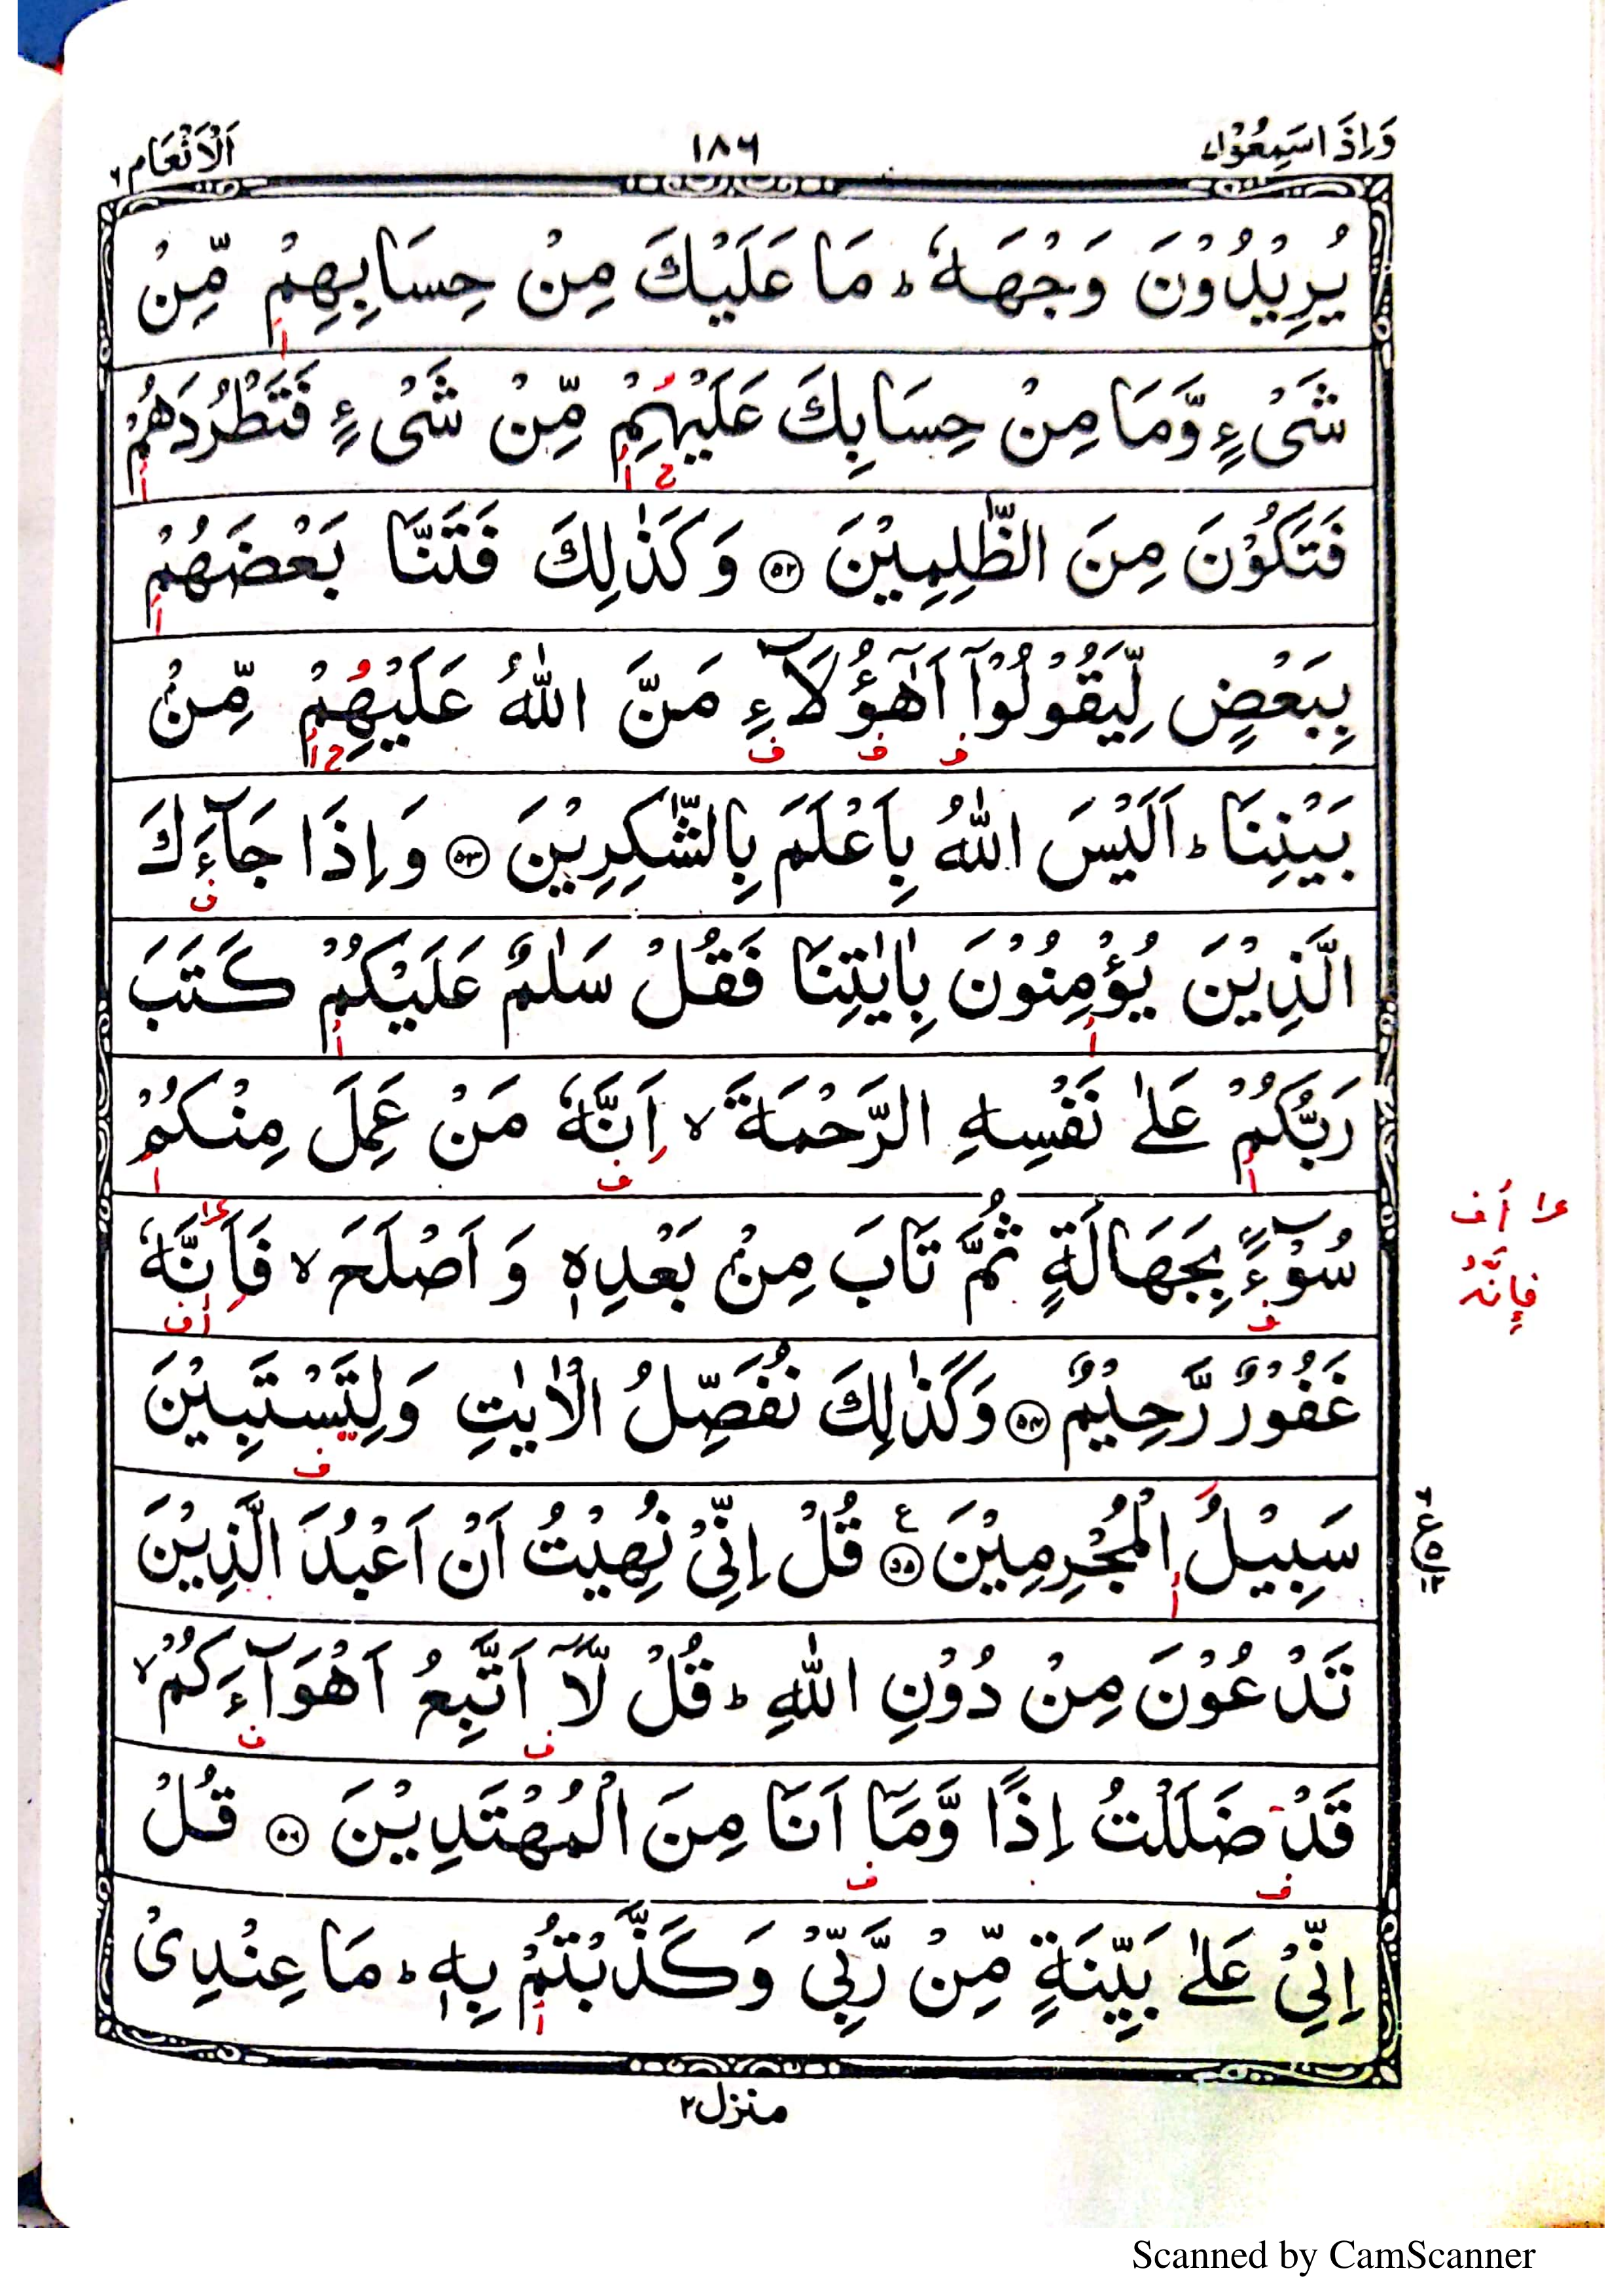 وَاِذَا سَمِعُوْا ٧
١٨٦
اَلْاَنْعَام ٦
يُرِيْدُوْنَ وَجْهَهٗ ؕ مَا عَلَيْكَ مِنْ حِسَابِهِمْ مِّنْ
شَىْءٍ وَّمَا مِنْ حِسَابِكَ عَلَيْهِمْ مِّنْ شَىْءٍ فَتَطْرُدَهُمْ
فَتَكُوْنَ مِنَ الظّٰلِمِيْنَ ۝٥٢ وَكَذٰلِكَ فَتَنَّا بَعْضَهُمْ
بِبَعْضٍ لِّيَقُوْلُوْٓا اَهٰٓؤُلَآءِ مَنَّ اللّٰهُ عَلَيْهِمْ مِّنْۢ
بَيْنِنَا ؕ اَلَيْسَ اللّٰهُ بِاَعْلَمَ بِالشّٰكِرِيْنَ ۝٥٣ وَاِذَا جَآءَكَ
الَّذِيْنَ يُؤْمِنُوْنَ بِاٰيٰتِنَا فَقُلْ سَلٰمٌ عَلَيْكُمْ كَتَبَ
رَبُّكُمْ عَلٰى نَفْسِهِ الرَّحْمَةَ ۙ اَنَّهٗ مَنْ عَمِلَ مِنْكُمْ
سُوْٓءًۢا بِجَهَالَةٍ ثُمَّ تَابَ مِنْۢ بَعْدِهٖ وَاَصْلَحَ ۙ فَاَنَّهٗ
عـ١ أف
فإِنَّهُ
غَفُوْرٌ رَّحِيْمٌ ۝٥٤ وَكَذٰلِكَ نُفَصِّلُ الْاٰيٰتِ وَلِتَسْتَبِيْنَ
سَبِيْلُ الْمُجْرِمِيْنَ ۝٥٥ ع قُلْ اِنِّىْ نُهِيْتُ اَنْ اَعْبُدَ الَّذِيْنَ
تَدْعُوْنَ مِنْ دُوْنِ اللّٰهِ ؕ قُلْ لَّآ اَتَّبِعُ اَهْوَآءَكُمْ ۙ
قَدْ ضَلَلْتُ اِذًا وَّمَآ اَنَا مِنَ الْمُهْتَدِيْنَ ۝٥٦ قُلْ
اِنِّىْ عَلٰى بَيِّنَةٍ مِّنْ رَّبِّىْ وَكَذَّبْتُمْ بِهٖ ؕ مَا عِنْدِىْ
منزل ٢
Scanned by CamScanner